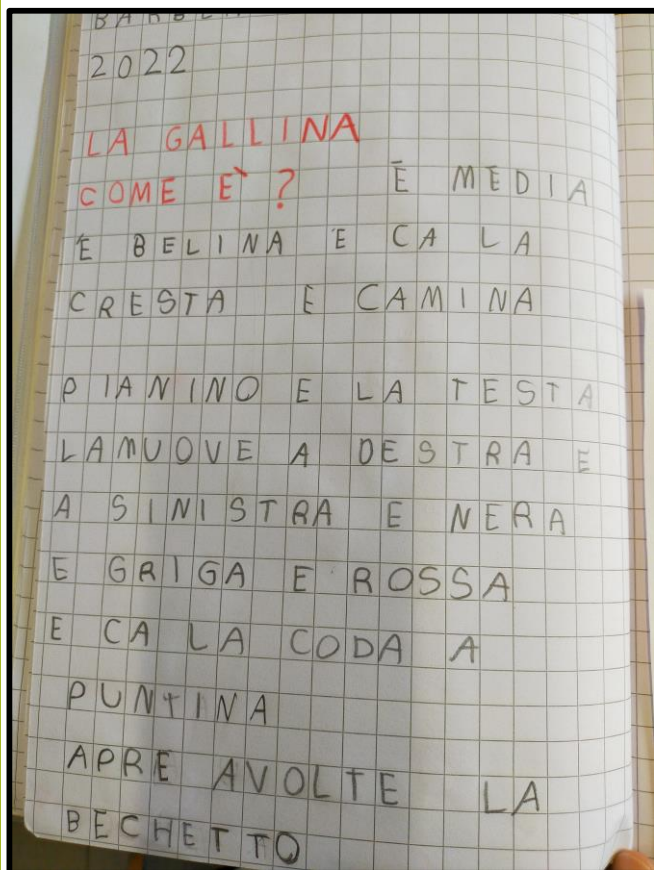 2022
LA GALLINA
COME E`? È MEDIA
È BELINA E CA LA
CRESTA E CAMINA
PIANINO E LA TESTA
LAMUOVE A DESTRA E
A SINISTRA E NERA
E GRIGA E ROSSA
E CA LA CODA A
PUNTINA
APRE AVOLTE LA
BECHETTO